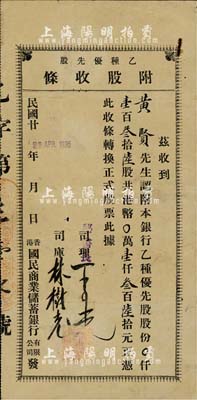 上海陽明拍賣
股先優種乙
條收股附
茲收到
黃賢先生認附本銀行乙種優先股股份〇仟
壹百叁拾陸股共港幣〇萬壹仟叁百陸拾元正憑
此收條轉換正式股票此據
司理
司庫 林樹
民國廿 年 月 日
APR 1935
香港國民商業儲蓄銀行有限公司發
字第 號